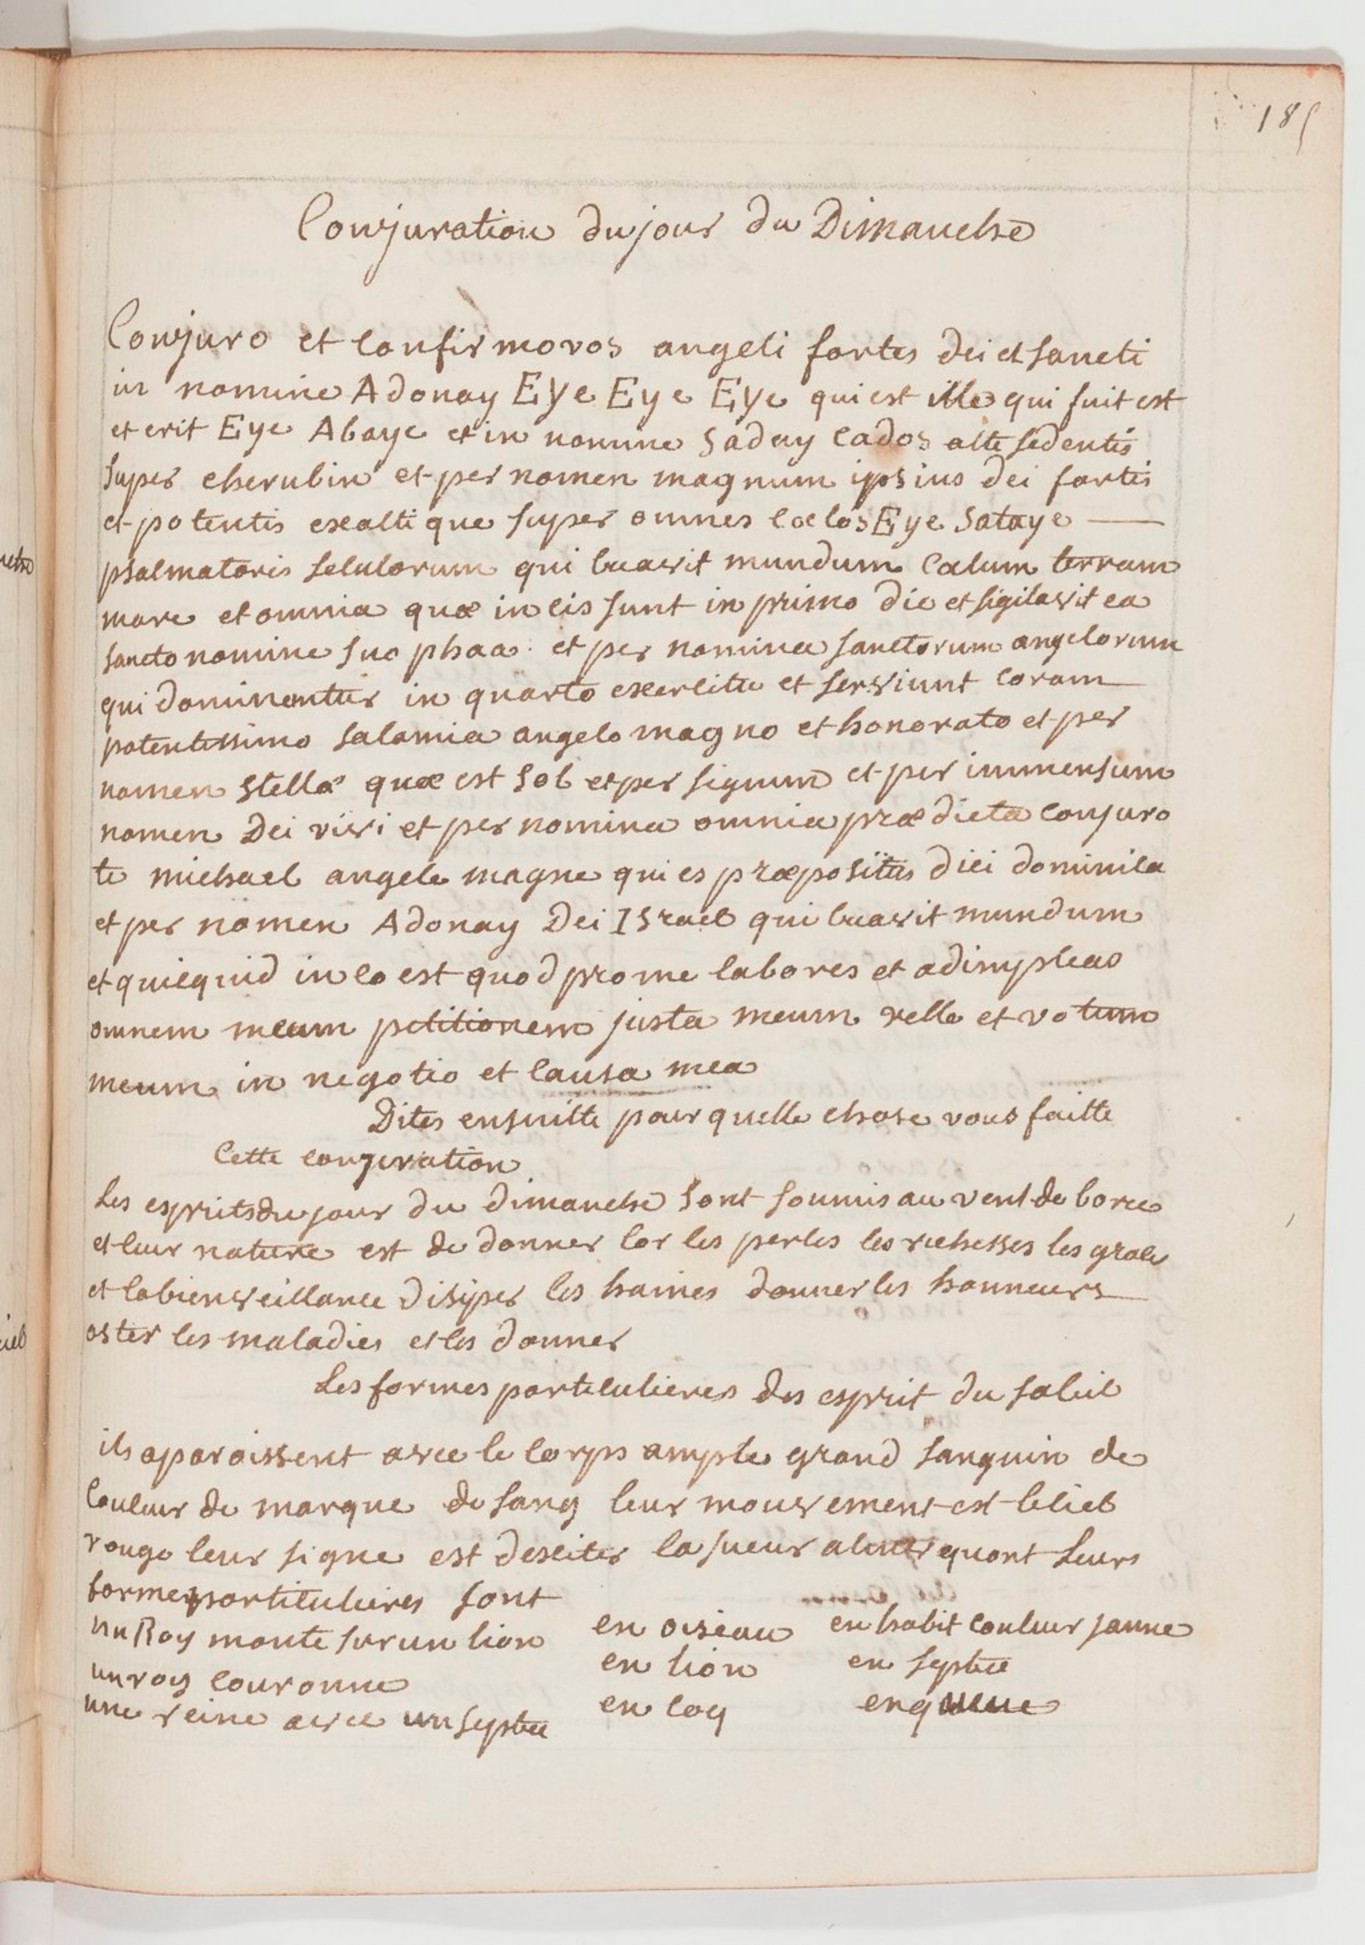 185
Conjuration du jour du Dimanche
Conjuro et confirmo vos angeli fortes dei et sancti
in nomine Adonay Eye Eye Eye qui est ille qui fuit est
et erit Eye Abaye et in nomine Saday Cados alte sedentis
super cherubin et per nomen magnum ipsius dei fortis
et potentis exaltique super omnes coelos Eye Sataye
psalmatoris seculorum qui creavit mundum Calum terram
mare et omnia quæ in eis sunt in primo die et sigilavit ea
sancto nomine suo phaa. et per nomina sanctorum angelorum
qui dominantur in quarto exercitu et serviunt coram
potentissimo Salamia angelo magno et honorato et per
nomen stellæ quæ est Sol et per signum et per immensum
nomen Dei vivi et per nomina omnia prædicta conjuro
te michael angele magne qui es præpositus diei dominica
et per nomen Adonay Dei ISrael qui creavit mundum
et quicquid in eo est quod pro me labores et adimpleas
omnem meum petitionem justa meum velle et votum
meum in negotio et causa mea
Dites ensuitte pour quelle chose vous faitte
Cette conjuration
Les esprits du jour du dimanche sont soumis au vent de boree
et leur nature est de donner lor les perles les richesses les grace
et la bienveillance disiper les haines donner les honneurs
oster les maladies et les donner
Les formes particulieres des esprit du soleil
ils aparoissent avec le corps ample grand sanguin de
couleur de marque de sang leur mouvement est le ciel
rouge leur signe est desciter la sueur quant leurs
formes particulieres sont
un Roy monte sur un lion en oiseau en habit couleur jaune
un roy couronne en lion en sceptre
une reine avec un sceptre en coq en queue